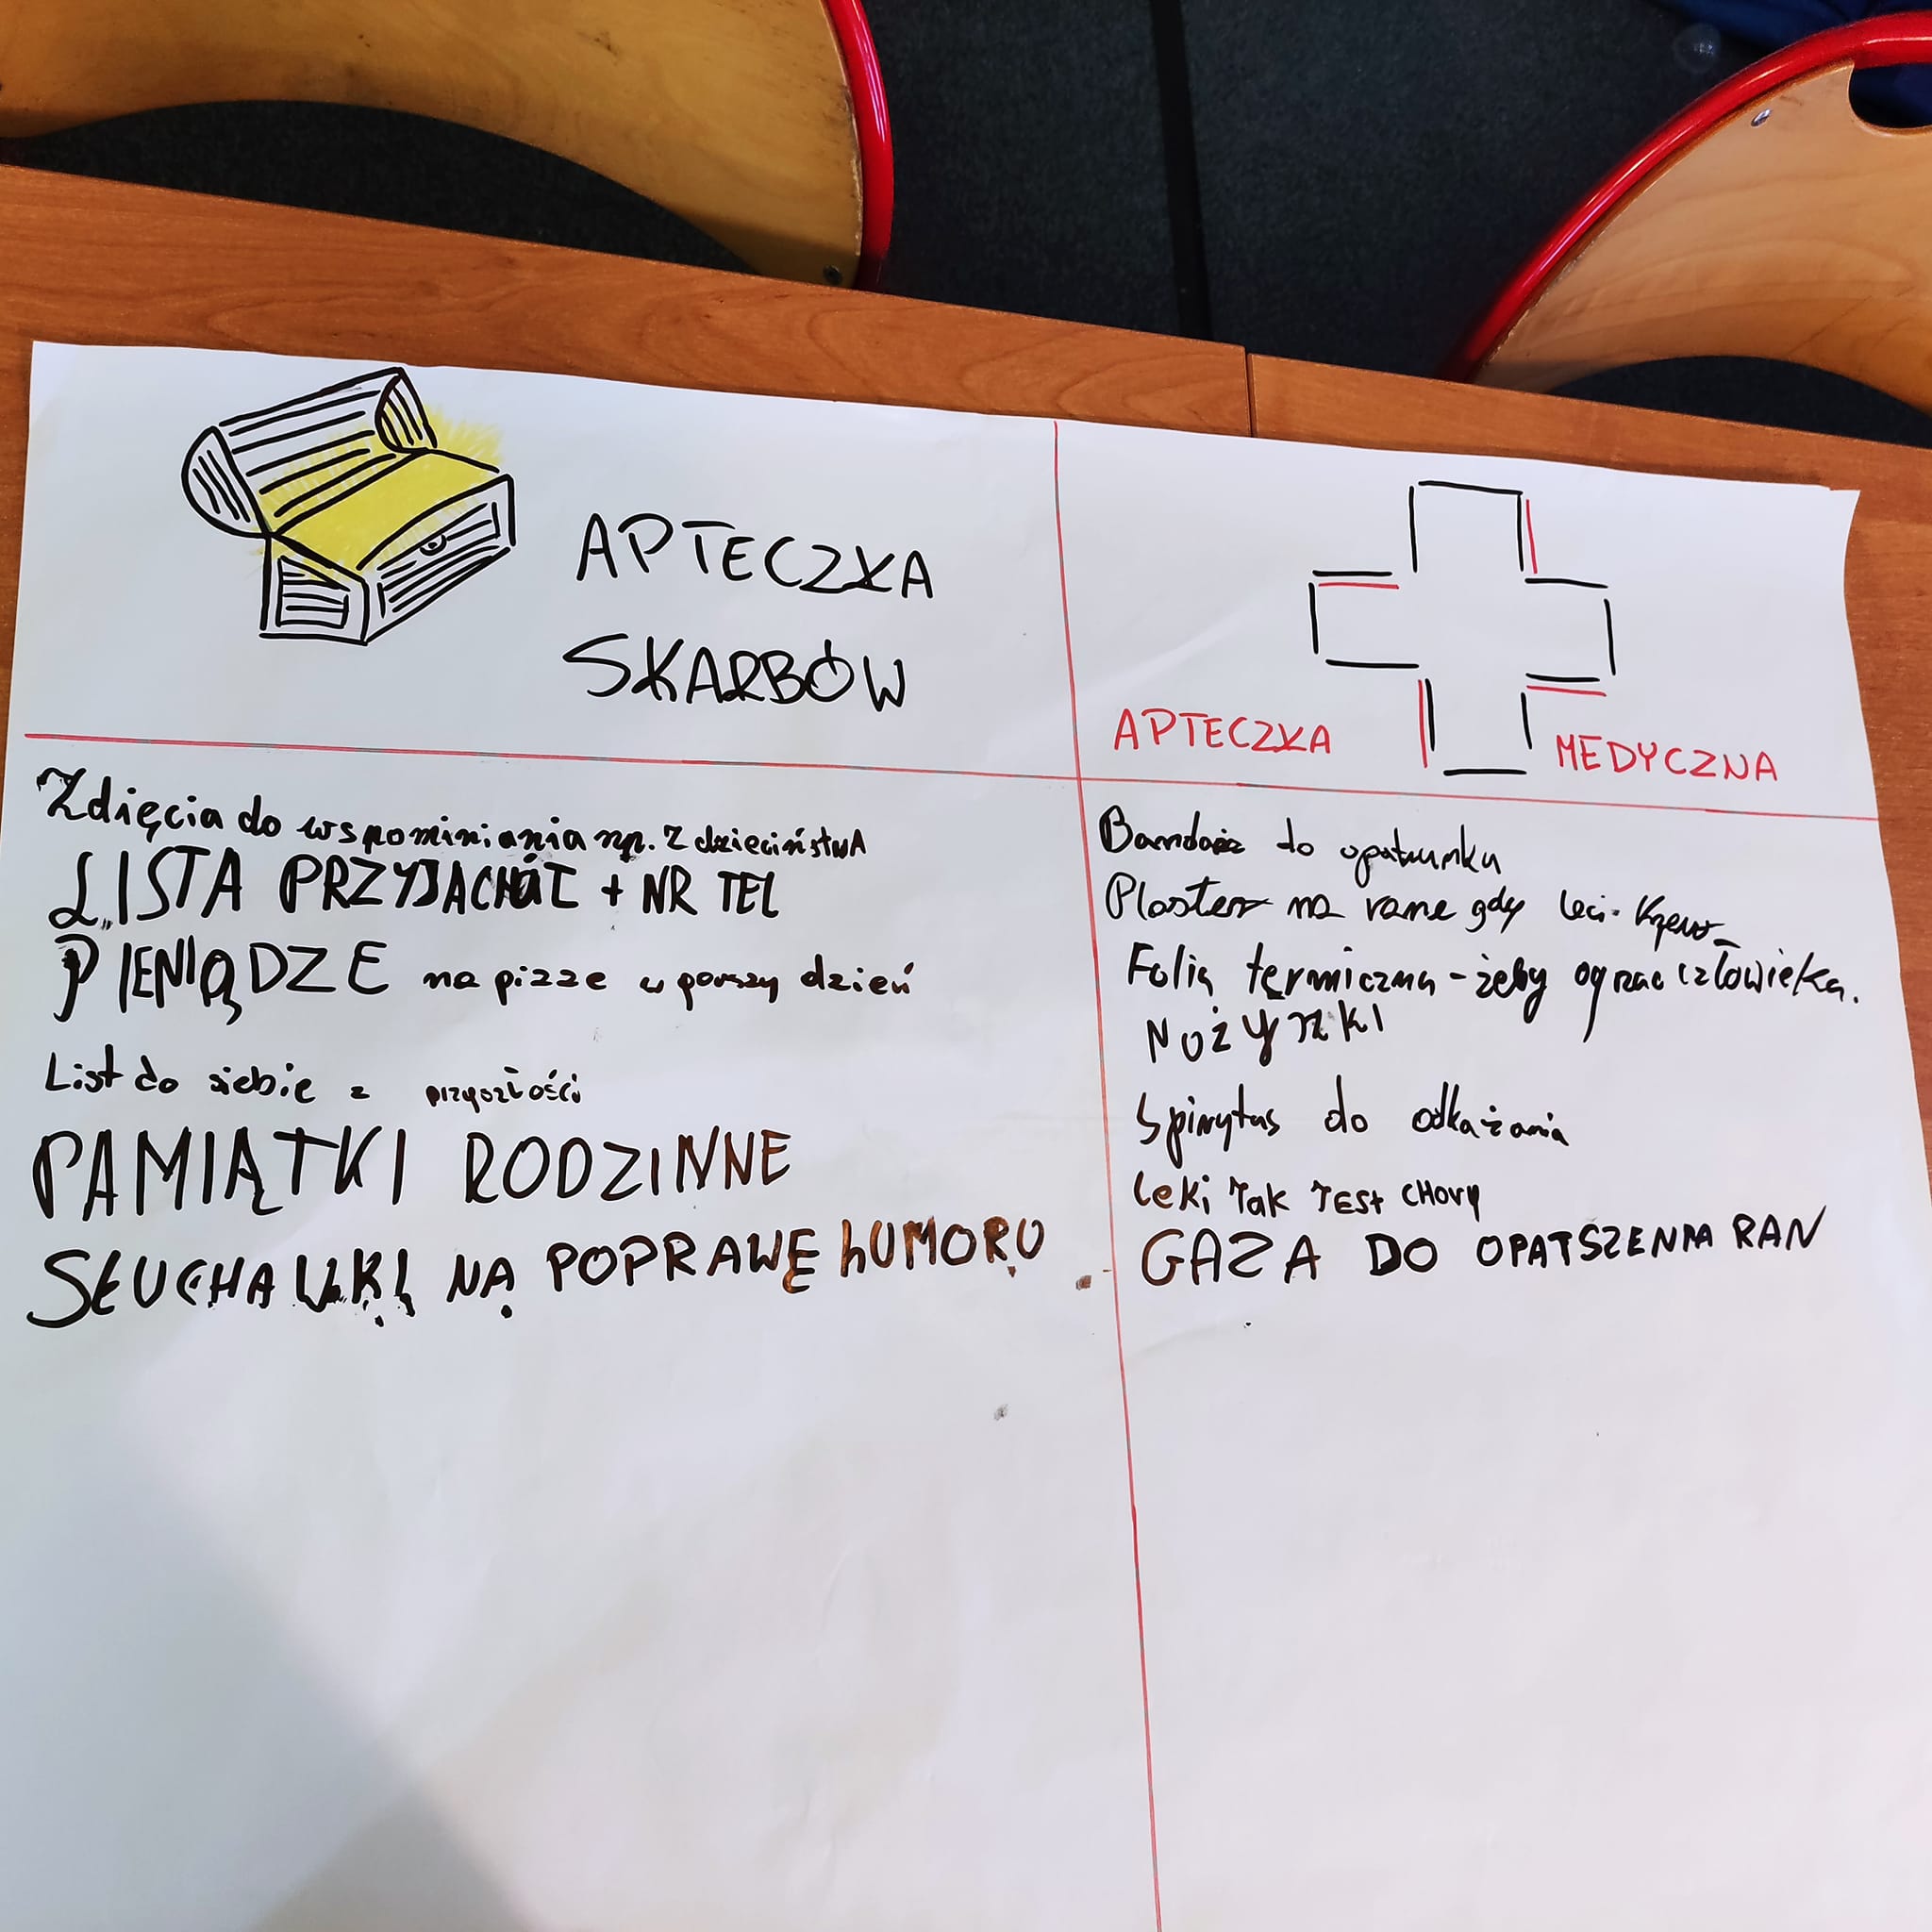 APTECZKA
SKARBÓW
Zdięcia do wspominiania np. z dzieciństwA
LISTA PRZYJACHÓŁ + NR TEL
PIENIĄDZE na pizze w gorszy dzień
List do siebie z przyszłości
PAMIĄTKI RODZINNE
SŁUCHAWKI NA POPRAWĘ hUMORU
APTECZKA MEDYCZNA
Bandarz do opatrunku
Plaster na rane gdy leci krew
Folia termiczna - żeby ogrzac człowieka.
NOŻYCZKI
Spirytus do odkażania
Leki Jak JESt CHORY
GAZA DO OPATSZENIA RAN